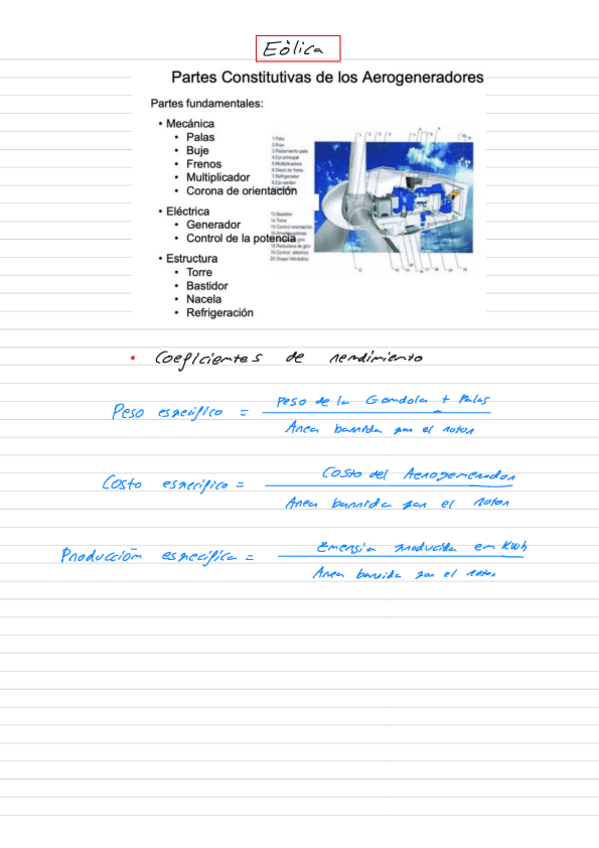 Eòlica
Partes Constitutivas de los Aerogeneradores
Partes fundamentales:
• Mecánica
• Palas
• Buje
• Frenos
• Multiplicador
• Corona de orientación
• Eléctrica
• Generador
• Control de la potencia
• Estructura
• Torre
• Bastidor
• Nacela
• Refrigeración
1 Pala
2 Buje
3 Rodamiento pala
4 Eje principal
5 Multiplicadora
6 Disco de freno
7 Refrigerador
13 Bastidor
14 Torre
15 Control orientación
18 Reductora de giro
19 Control eléctrico
20 Grupo Hidráulico
• Coeficientes de rendimiento
Peso específico = Peso de la Gondola + Palas
Área barrida por el rotor
Costo específico = Costo del Aerogenerador
Área barrida por el rotor
Producción específica = Energia producida en Kwh
Área barrida por el rotor